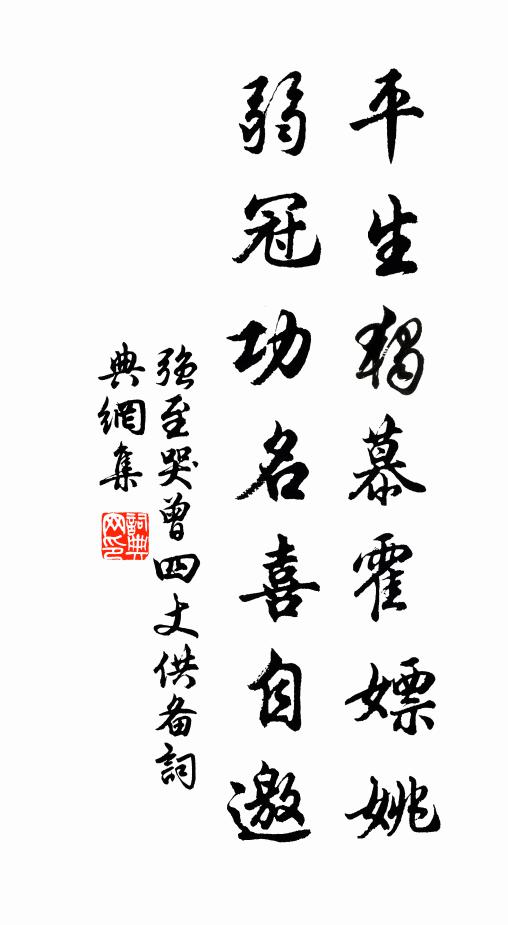 平生獨慕霍嫖姚
弱冠功名喜自邀
強至哭曾四丈供备詞
典網集
詞典
网印